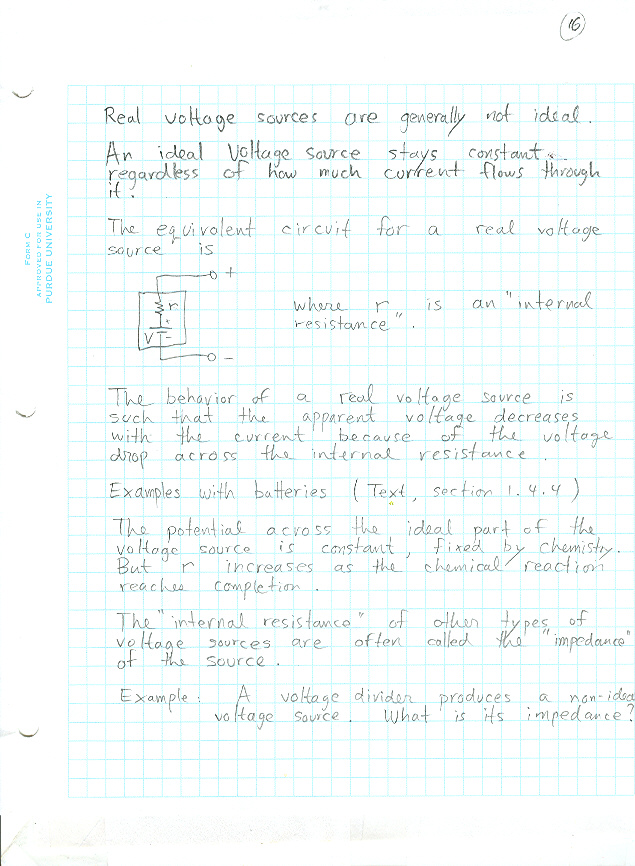 16
Real voltage sources are generally not ideal.
An ideal Voltage source stays constant
regardless of how much current flows through
it.
FORM C
APPROVED FOR USE IN
PURDUE UNIVERSITY
The equivalent circuit for a real voltage
source is
+
r
+
V -
-
where r is an "internal
resistance".
The behavior of a real voltage source is
such that the apparent voltage decreases
with the current because of the voltage
drop across the internal resistance.
Examples with batteries (Text, section 1.4.4)
The potential across the ideal part of the
voltage source is constant, fixed by chemistry.
But r increases as the chemical reaction
reaches completion.
The "internal resistance" of other types of
voltage sources are often called the "impedance"
of the source.
Example: A voltage divider produces a non-idea
voltage source. What is its impedance?